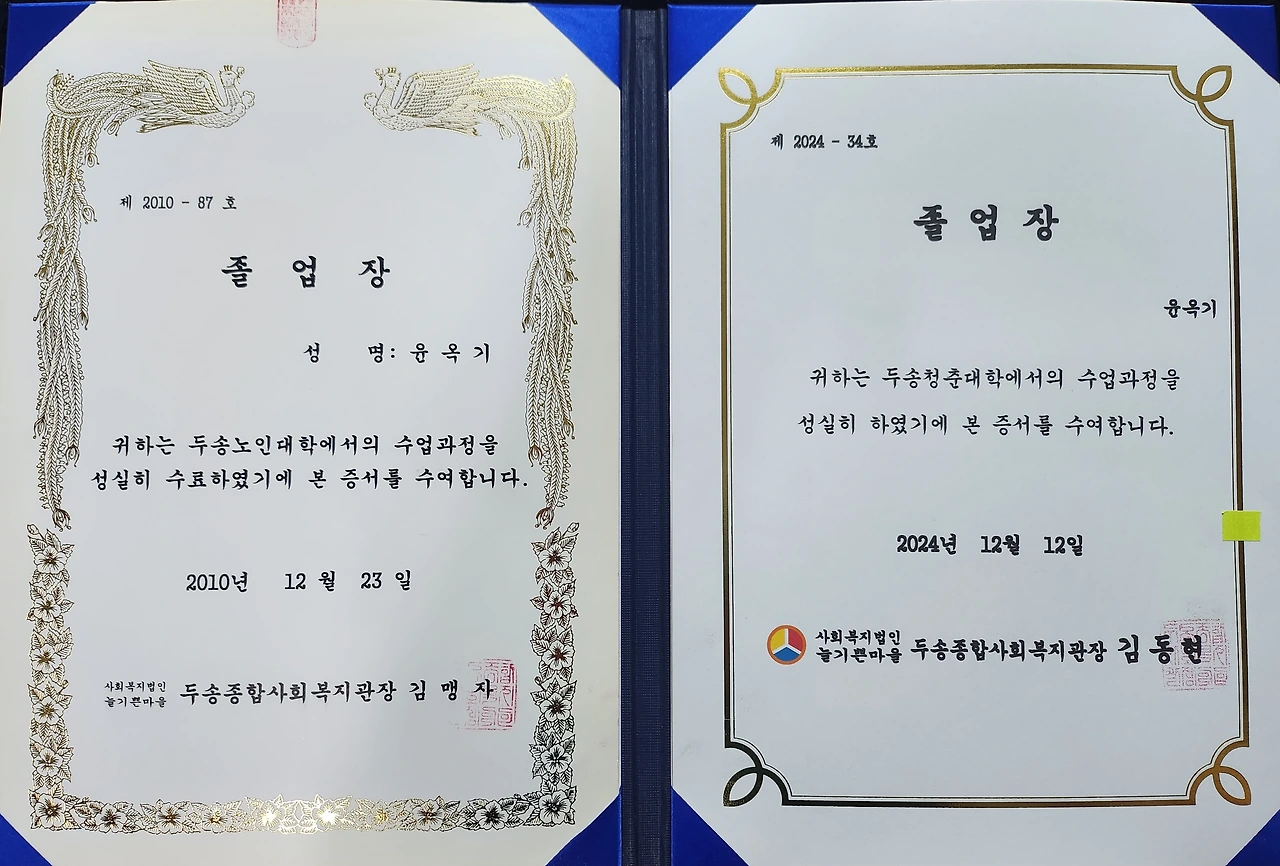 제 2010 - 87 호
졸 업 장
성 명: 윤 옥 기
귀하는 두송노인대학에서의 수업과정을
성실히 수료하였기에 본 증서를 수여합니다.
2010년 12 월 23 일
사회복지법인
늘기쁜마을
두송종합사회복지관장 김 맹 자
제 2024 - 34호
졸 업 장
윤옥기
귀하는 두송청춘대학에서의 수업과정을
성실히 하였기에 본 증서를 수여합니다.
2024년 12월 12일
사회복지법인
늘기쁜마을
두송종합사회복지관장 김 동 현